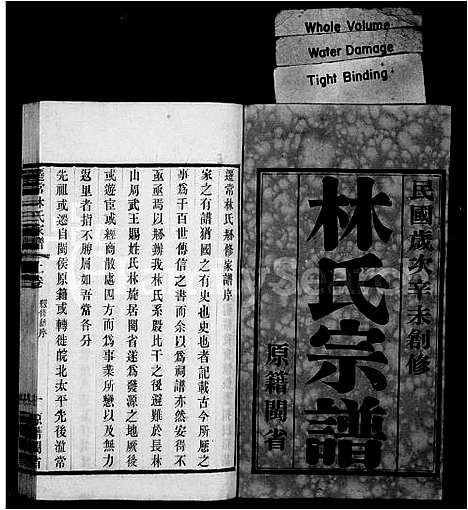 Whole Volume
Water Damage
Tight Binding
民國歲次辛未創修
林氏宗譜
原籍閩省
遷常林氏縣修家譜序
家之有譜猶國之有史也史者記載古今所歷之
事為千百世傳信之書而余以為祠譜亦然安得不
亟亟焉以縣辦我林氏系殷比干之後避難於長林
山周武王賜姓氏林旋居閩省遂為發源之地厥後
或遊宦或經商散處四方而為事業所戀以及無力
返里者指不勝屈如吾常各分
先祖或遷自閩侯原籍或轉徙皖北太平先後流常
遷常林氏家譜
卷
一
原籍閩省